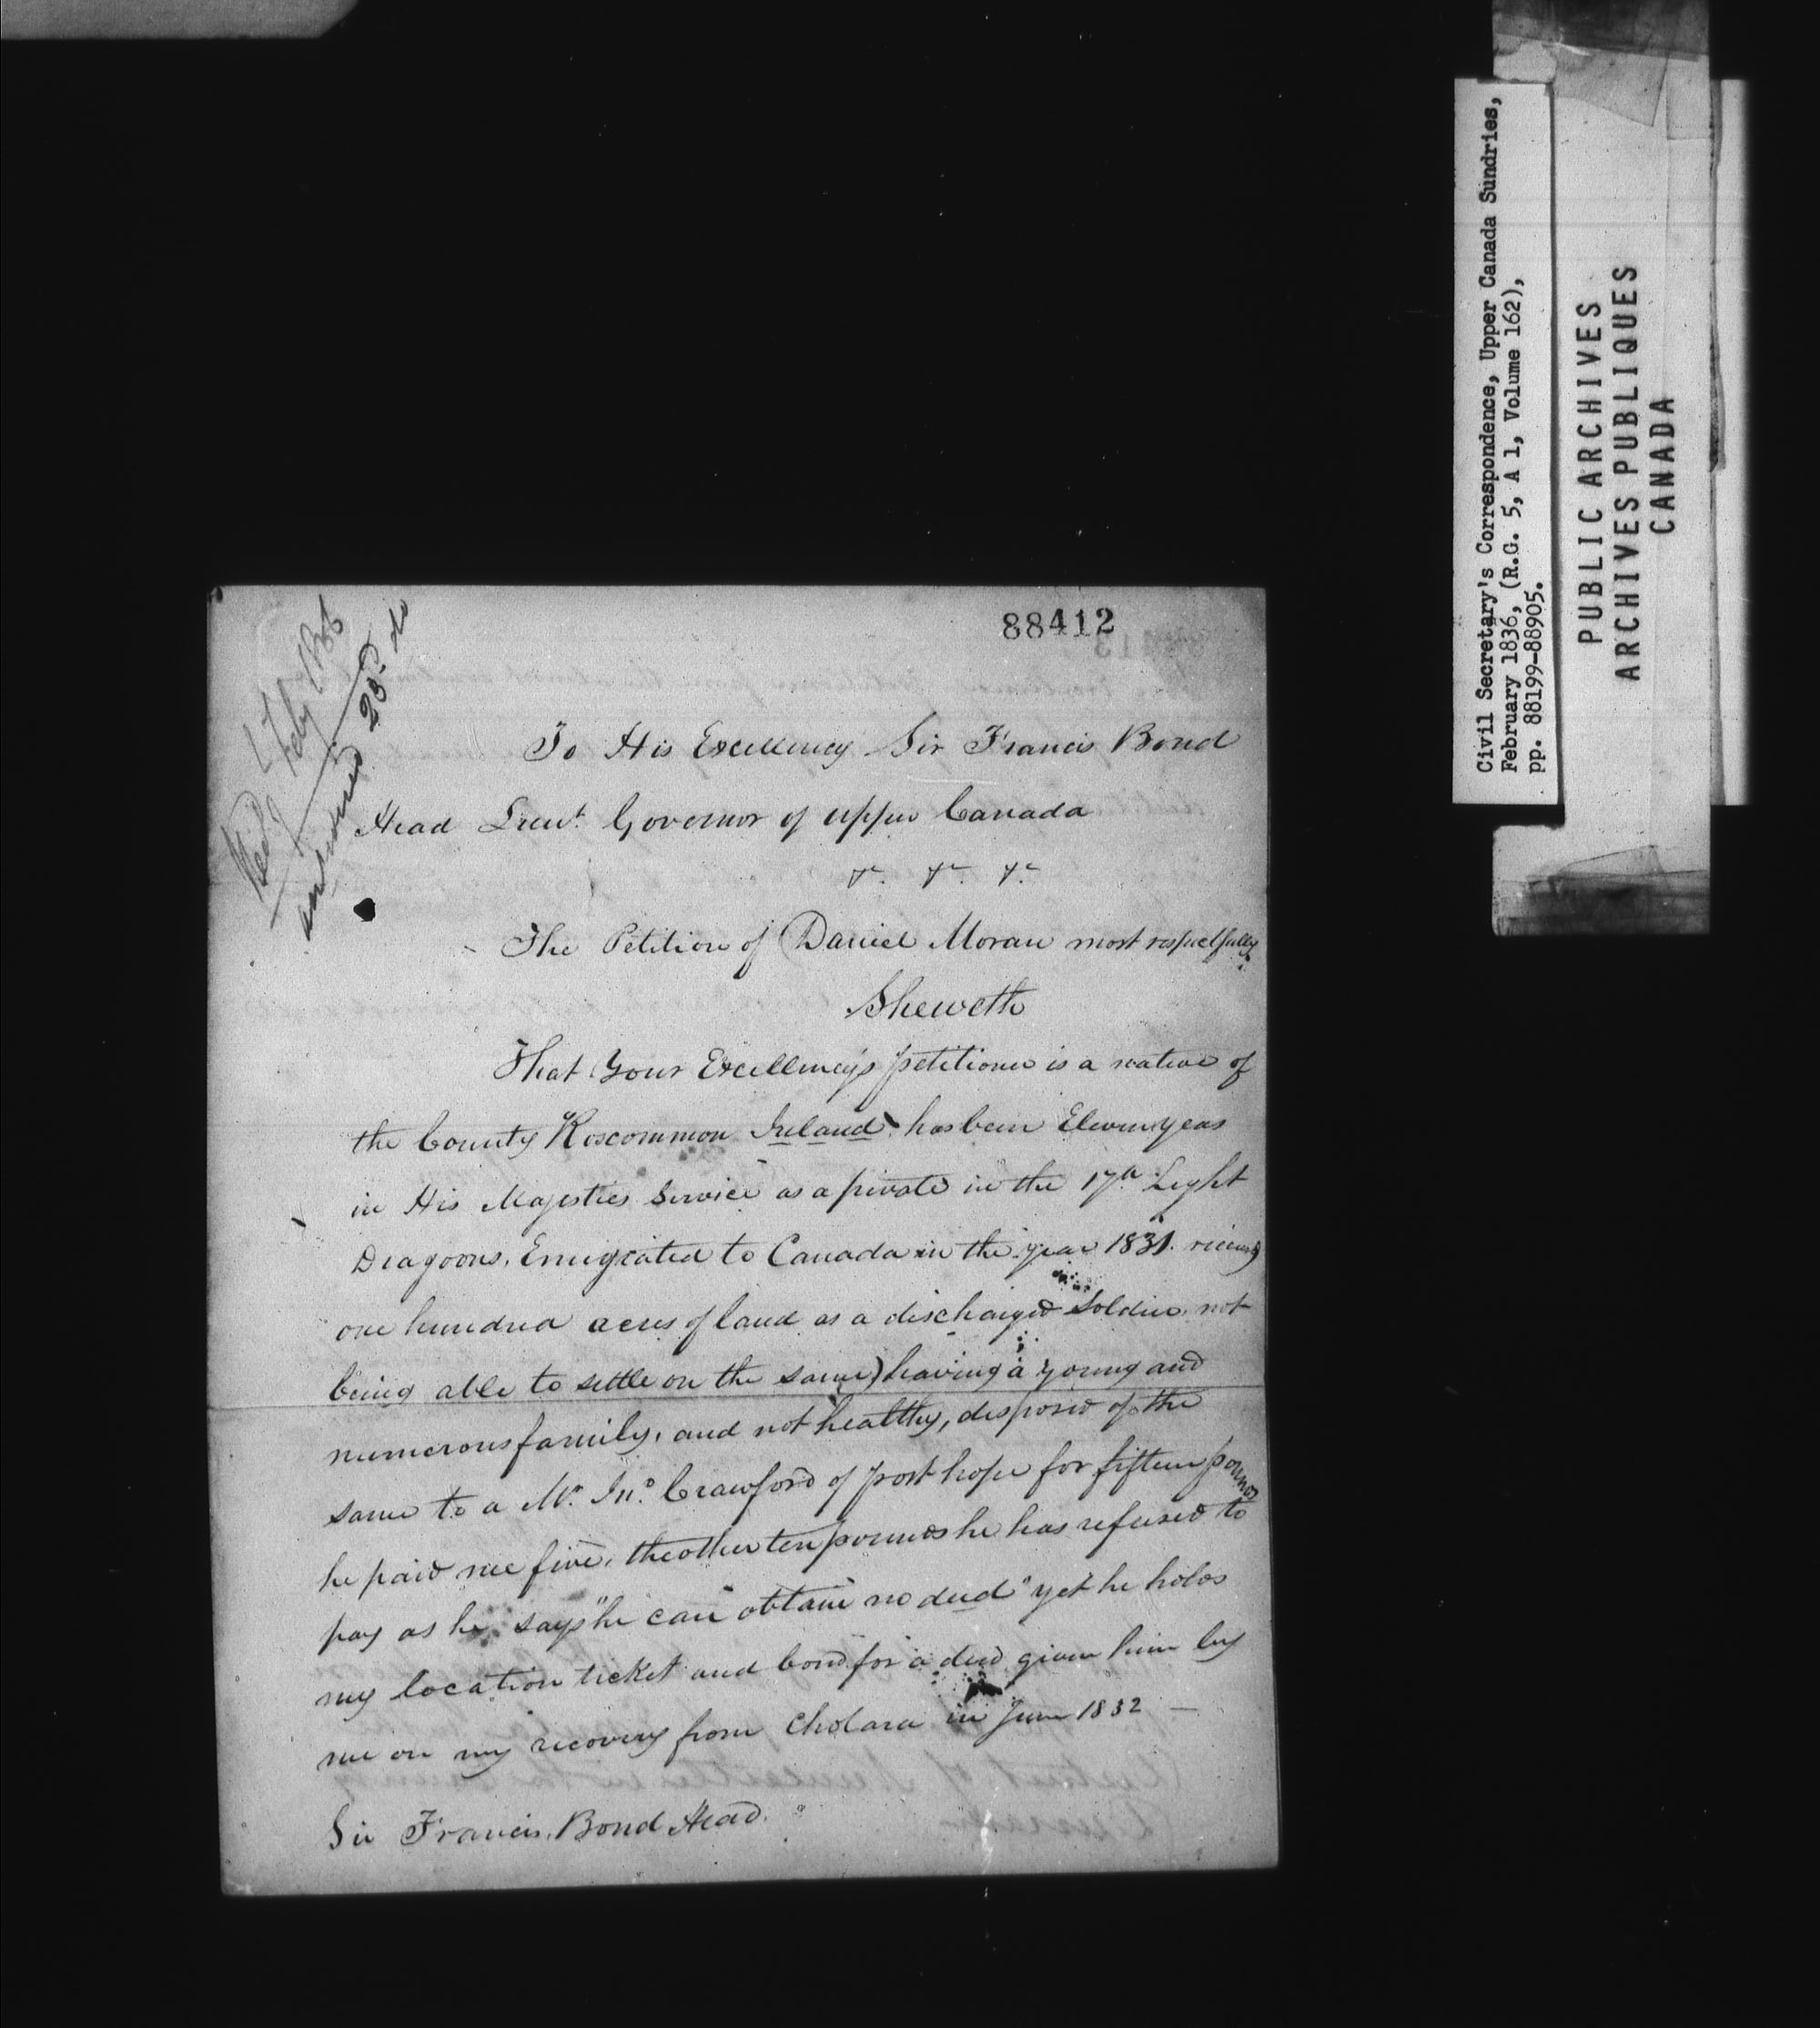 88412
Recd. 27 Feby 1836
answered 28th do
To His Excellency Sir Francis Bond
Head Lieut. Governor of upper Canada
&c. &c. &c.
The Petition of Daniel Moran most respectfully
Sheweth
That Your Excellency's petitioner is a native of
the County Roscommon Ireland has been Eleven years
in His Majesties Service as a private in the 17th Light
Dragoons. Emigrated to Canada in the year 1831. received
one hundred acres of land as a discharged Soldier. not
being able to settle on the same) having a young and
numerous family, and not healthy, disposed of the
same to a Mr. Jno. Crawford of port hope for fifteen pounds
he paid me five, the other ten pounds he has refused to
pay as he says "he can obtain no deed" yet he holds
my location ticket and bond for a deed given him by
me on my recovery from Cholara in June 1832 —
Sir Francis. Bond Head.
Civil Secretary's Correspondence, Upper Canada Sundries,
February 1836, (R.G. 5, A 1, Volume 162),
pp. 88199-88905.
PUBLIC ARCHIVES
ARCHIVES PUBLIQUES
CANADA